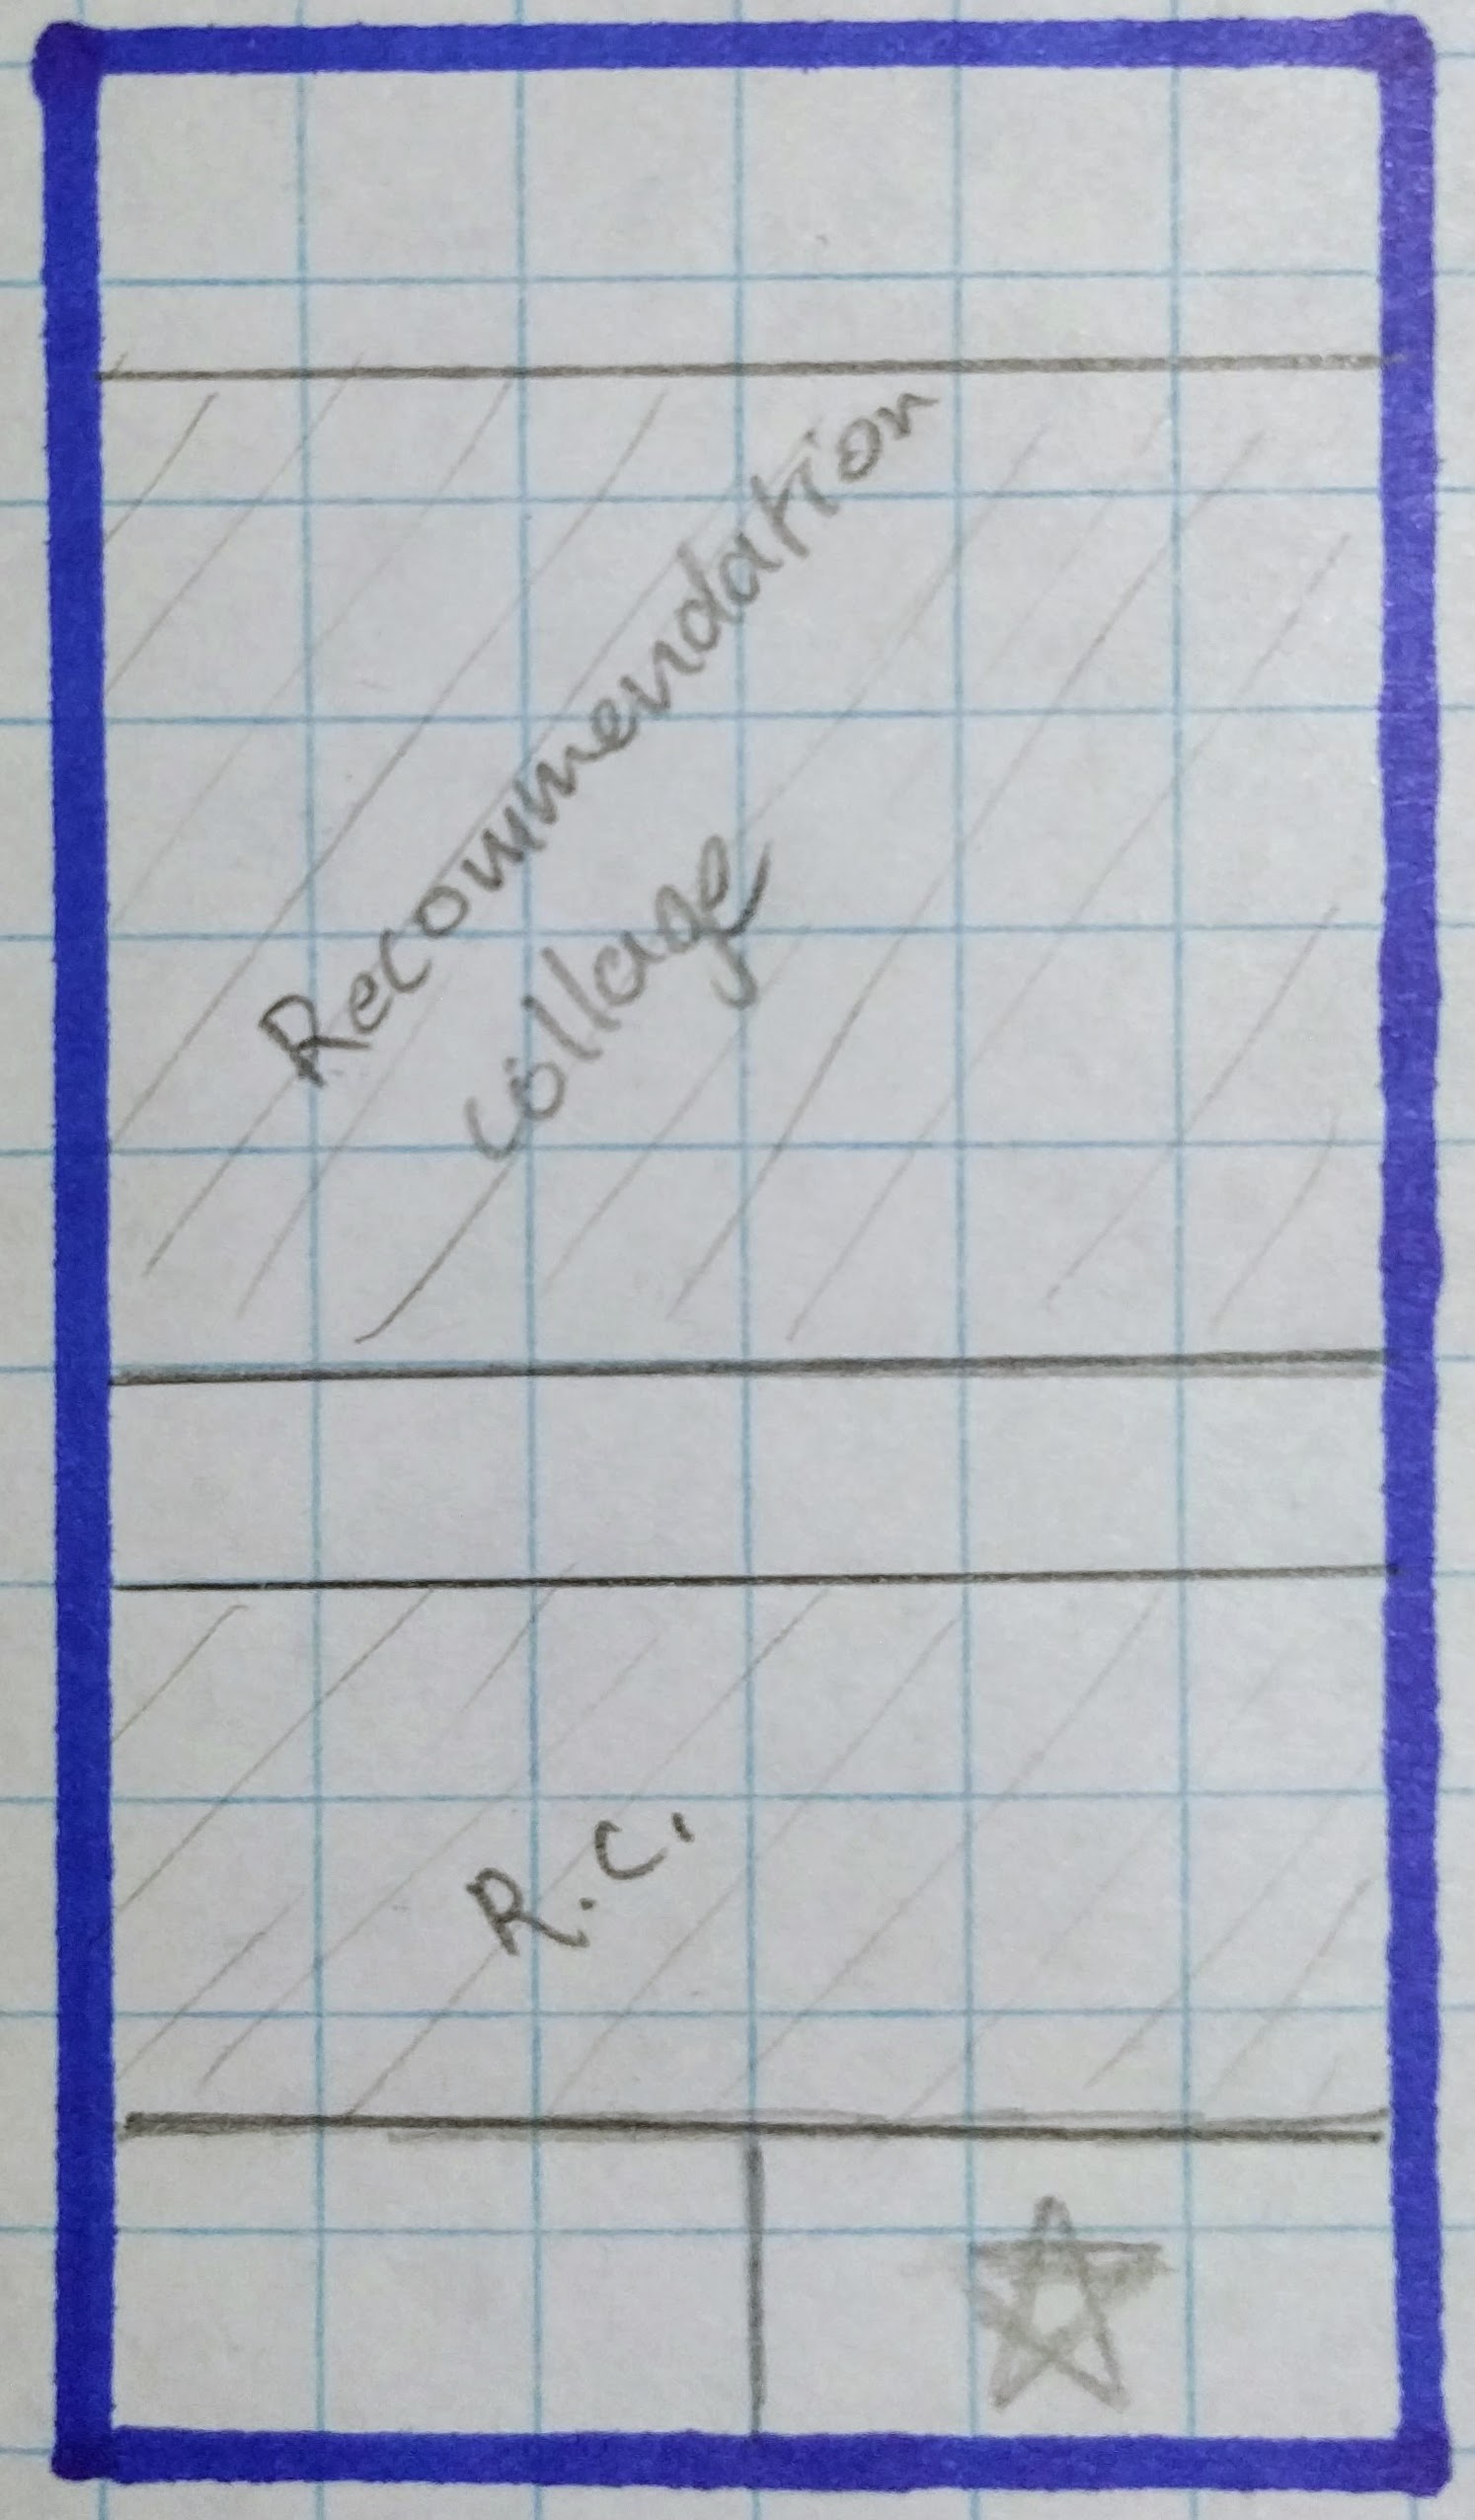 Recommendation
collage
R.C.